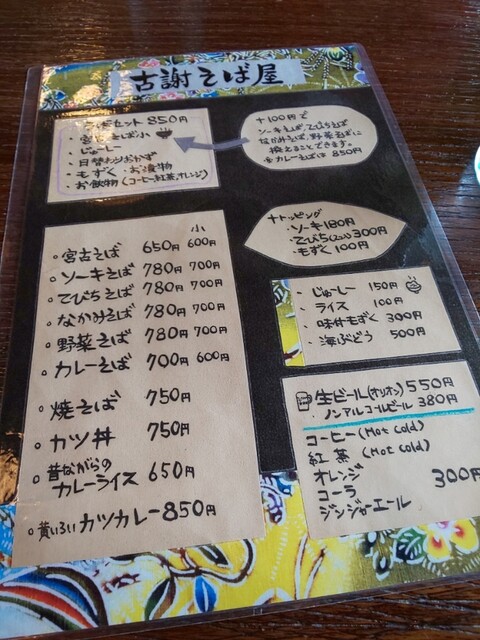 古謝そば屋
セット 850円
・宮古そば小
・じゅーしー
・日替わりおかず
・もずく・お漬物
お飲物(コーヒー,紅茶,オレンジ)
+100円で
ソーキそば,てびちそば
なかみそば,野菜そばに
換えることできます。
※カレーそばは 850円
小
・宮古そば 650円 600円
・ソーキそば 780円 700円
・てびちそば 780円 700円
・なかみそば 780円 700円
・野菜そば 780円 700円
・カレーそば 700円 600円
・焼そば 750円
・カツ丼 750円
・昔ながらの
カレーライス 650円
・黄いろいカツカレー 850円
+トッピング
・ソーキ180円
・てびち 300円
・もずく 100円
・じゅーしー 150円
・ライス 100円
・味付もずく 300円
・海ぶどう 500円
生ビール(オリオン) 550円
ノンアルコールビール 380円
コーヒー(Hot Cold)
紅茶 (Hot Cold)
オレンジ
コーラ 300円
ジンジャーエール